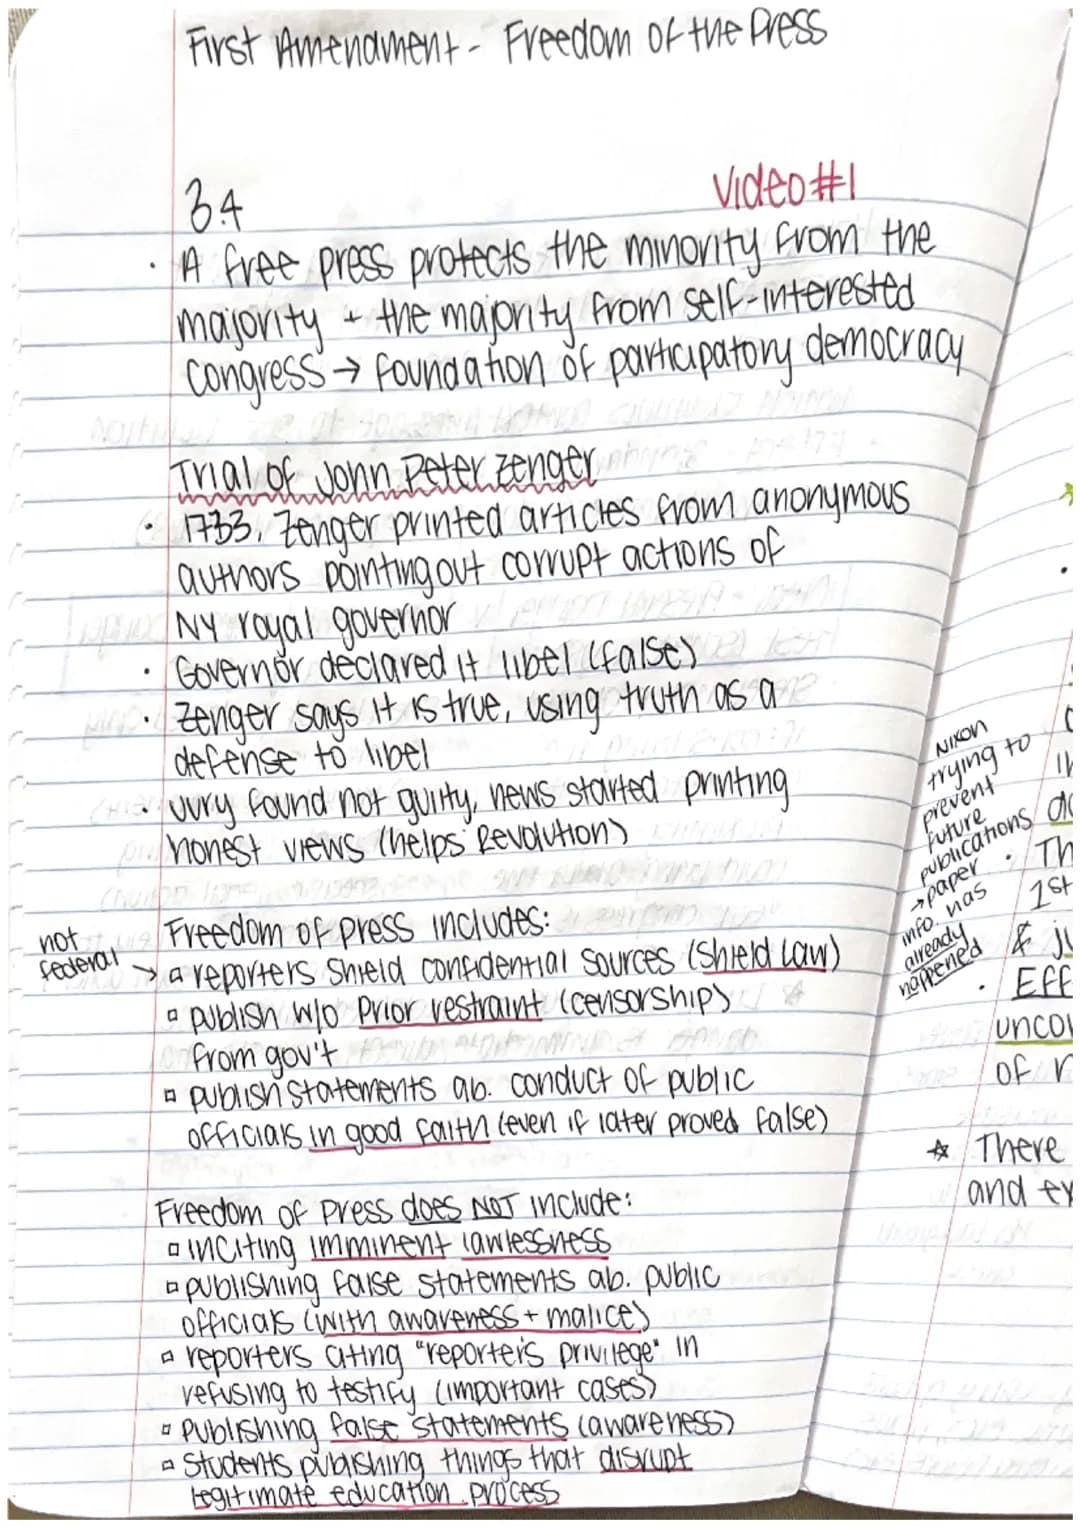 First Amendment - Freedom of the Press
3.4
Video #1
· A free press protects the minority from the
majority + the majority from self-interested
Congress → foundation of participatory democracy
Trial of John Peter Zenger
· 1733, Zenger printed articles from anonymous
authors pointing out corrupt actions of
NY royal governor
· Governor declared it libel (false)
· Zenger says it is true, using truth as a
defense to libel
· Jury found not guilty, news started printing
honest views (helps Revolution)
Freedom of press includes:
not
federal →
▫ reporters shield confidential sources (Shield Law)
▫ publish w/o prior restraint (censorship)
from gov't
▫ publish statements ab. conduct of public
officials in good faith (even if later proved false)
Freedom of Press does NOT include:
▫ inciting imminent lawlessness
▫ publishing false statements ab. public
officials (with awareness + malice)
▫ reporters citing "reporter's privilege" in
refusing to testify (important cases)
▫ Publishing false statements (awareness)
▫ Students publishing things that disrupt
legitimate education process
Nixon
trying to
prevent
future
publications
→ paper
info. has
already
happened
· Th
1st
& ju
· Eff
uncov
of r
☆ There
and ex